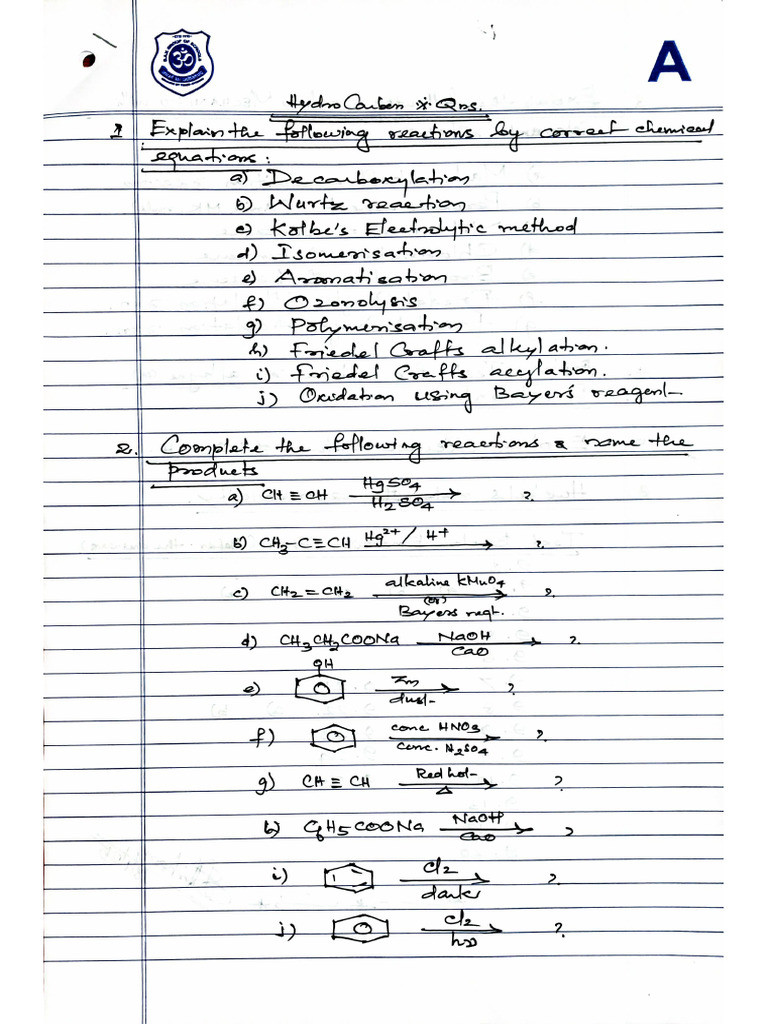 A
HydroCarbon * Qns.
1 Explain the following reactions by correct chemical
equations:
a) Decarboxylation
b) Wurtz reaction
c) Kolbe's Electrolytic method
d) Isomerisation
e) Aromatisation
f) Ozonolysis
g) Polymerisation
h) Friedel Crafts alkylation.
i) Friedel Crafts acylation.
j) Oxidation using Bayer's reagent
2. Complete the following reactions & name the
products
a) CH ≡ CH HgSO4 / H2SO4 → ?
b) CH3-C≡CH Hg2+ / H+ → ?
c) CH2 = CH2 alkaline KMnO4 (or) Bayers regt. → ?
d) CH3CH2COONa NaOH / CaO → ?
e) OH Zn dust → ?
f) conc HNO3 / conc. H2SO4 → ?
g) CH ≡ CH Red hot / Δ → ?
h) C6H5COONa NaOH / CaO → ?
i) Cl2 / dark → ?
j) Cl2 / hυ → ?